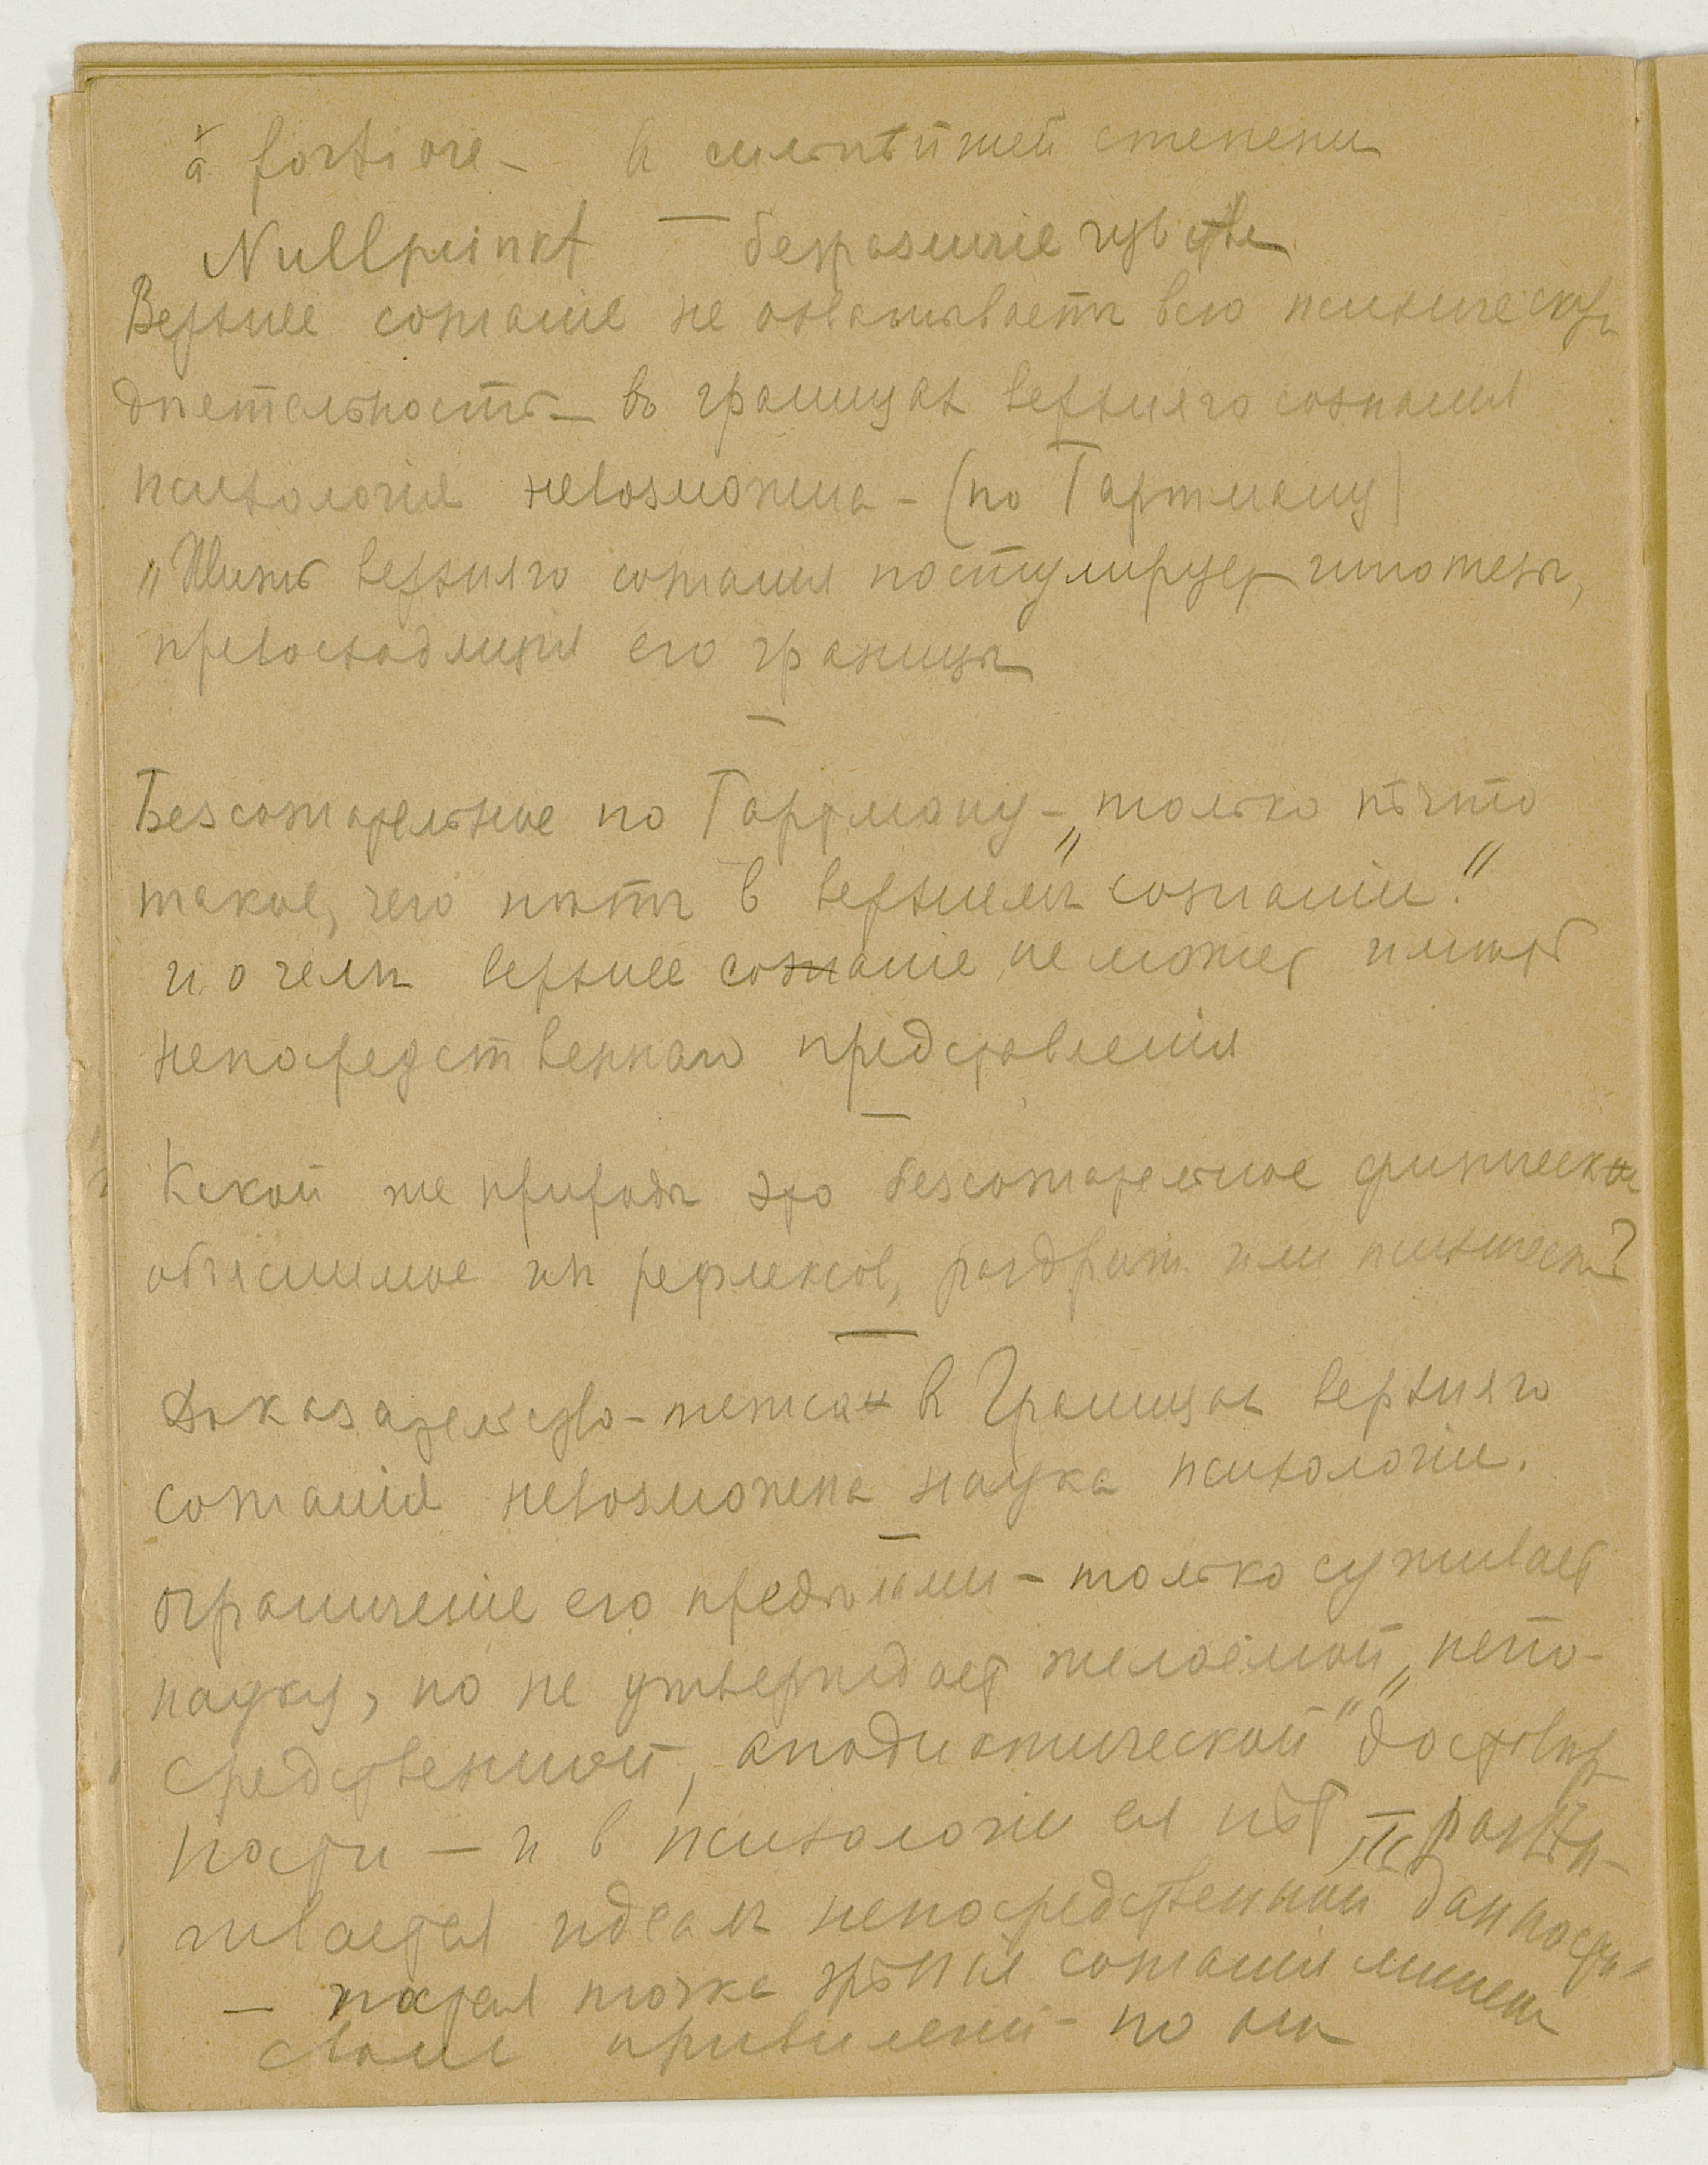 à fortiore – в сильнѣйшей степени
Nullpunkt – безразличіе чувства
Верхнее сознаніе не охватываетъ всю психическую
дѣетельность – въ границах верхняго сознанія
психологія невозможна – (по Гартману)
„Жизнь верхняго сознанія постулирует гипотезы,
превосходящія его границы
—
Безсознательное по Гартману – „только нѣчто
такое, чего нѣтъ в верхнемъ сознаніи."
и о чемъ верхнее сознаніе не может имѣть
непосредственнаго представленія
—
Какой же природы это безсознательное физическое
объяснимое изъ рефлексов, раздраж. или психическ?
—
Доказательство – тезиса в границах верхняго
сознанія невозможна наука психологіи.
—
ограниченіе его предѣлами – только суживает
науку, но не утверждает желаемой „непо-
средственной, аподиктической" достовѣр
ности – и в психологіи ея нѣт, т.е.
идеалъ непосредственной данности
– точка зрѣнія сознанія
свои привилегіи – по